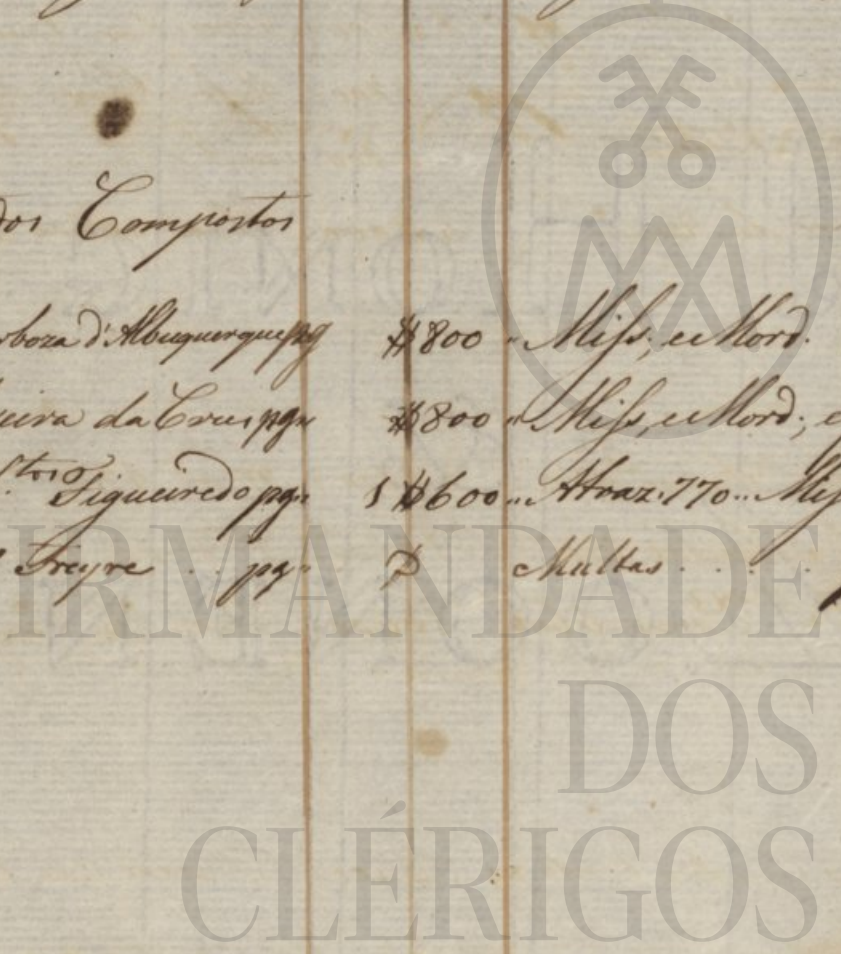 dos Compostos
rboza d'Albuquerque pg $800 " Miss; e Mord.
eira da Cruz pg" $800 " Miss, e Mord; e
Figueiredo pg" 1$600 " Atraz. 770 " Miss
Freyre . . pg" $ Multas . . . .
IRMANDADE
DOS
CLÉRIGOS